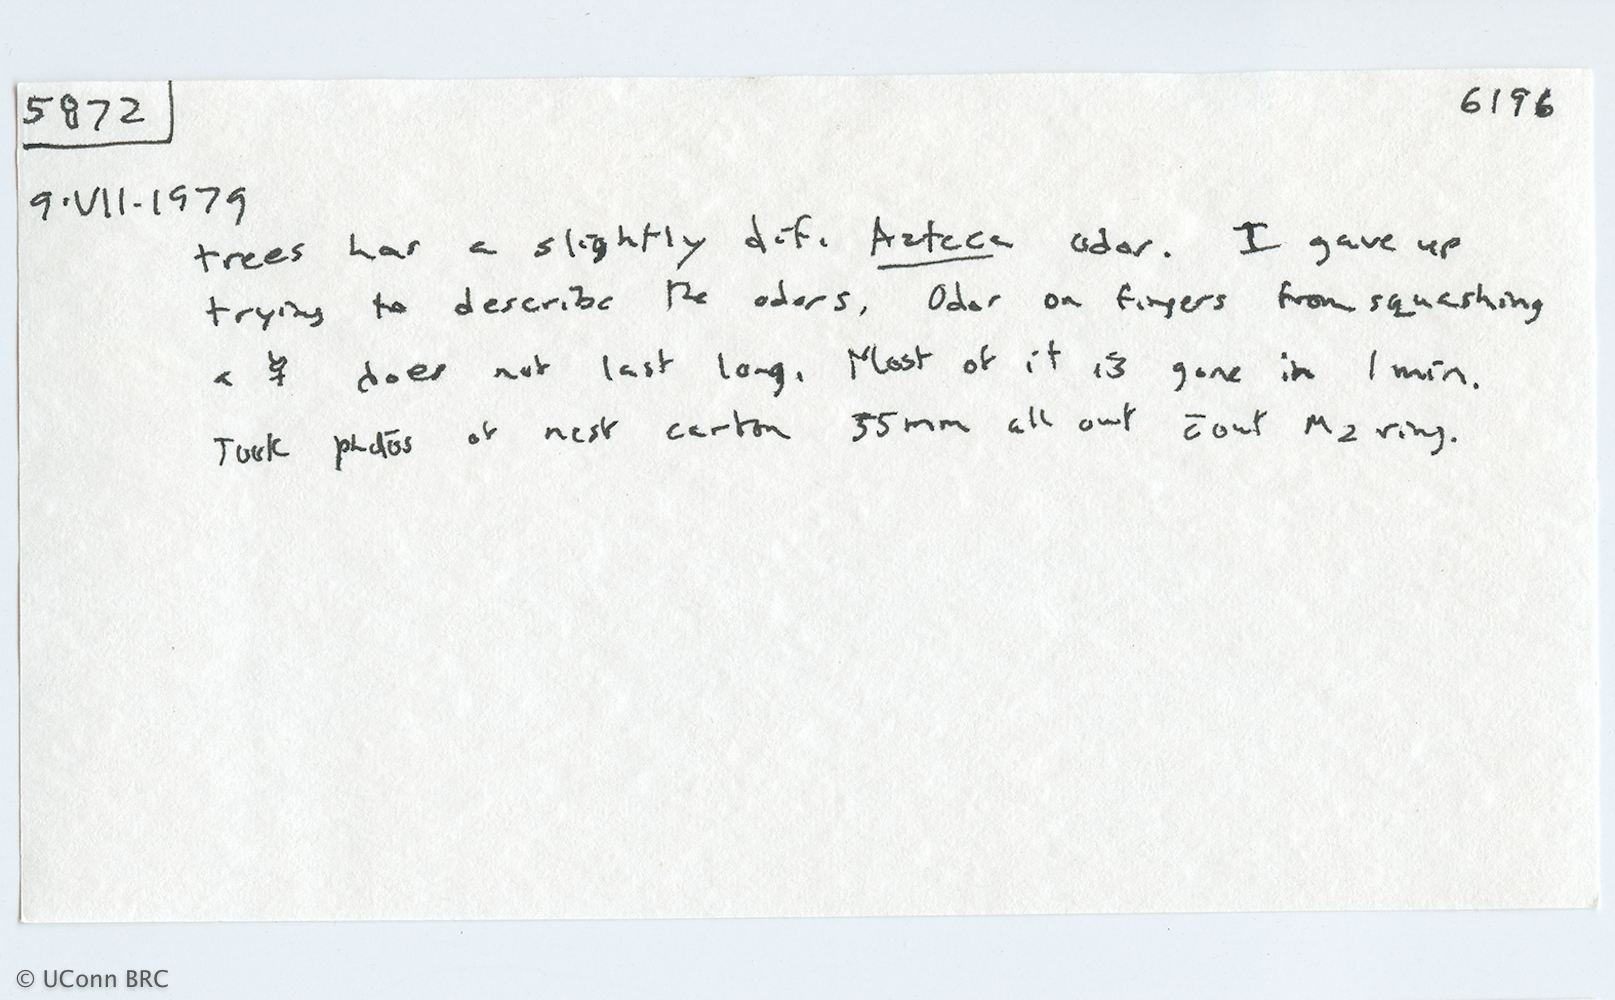 5872 6196
9·VII-1979
trees has a slightly dif. Azteca odor. I gave up
trying to describe the odors. Odor on fingers from squashing
a ☿ does not last long. Most of it is gone in 1 min.
Took photos of nest carton 55mm all out c̄out M2 ring.
© UConn BRC